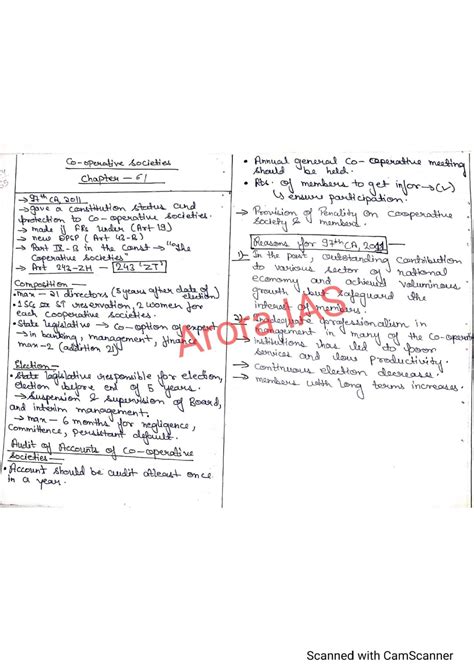 Co-operative Societies
Chapter - 61
→ 97th CA, 2011
→ gave a constitution status and
protection to Co-operative societies.
→ make it FRs under (Art 19)
→ new DPSP (Art 43-B)
→ Part IX-B in the Const → "The
Coperative Societies"
→ Art 243-ZH — 243 'ZT'
Composition —
• max - 21 directors (5 years after date of
election)
• 1 SC or ST reservation, 2 women for
each cooperative societies.
• State legislative → Co-option of expert
→ in banking, management, finance
max-2 (addition 21)
Election —
• State legislative responsible for election,
election before en of 5 years.
→ Suspension & supervision of Board,
and interim management.
→ max - 6 months for negligence,
Committence, persistant default.
Audit of Accounts of Co-operative
Societies —
• Account should be audit atleast once
in a year.
• Annual general Co-operative meeting
should be held.
• Rts. of members to get infor →
ensure participation.
→ Provision of Penality on Cooperative
society & members.
Reasons for 97th CA, 2011
1) In the past, outstanding contribution
to various sector of national
economy and achieved voluminous
growth but safeguard the
interest of members.
Inadequate professionalism in
management in many of the Co-operative
institutions has led to poor
services and low productivity.
→ Continuous election decreases.
→ members with long terms increases.
Arora IAS
Scanned with CamScanner